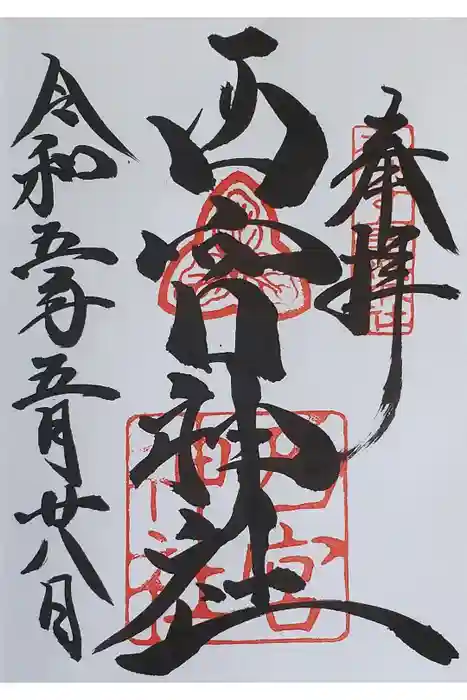 奉拝
西宮神社
令和五年五月廿八日
西宮
神社